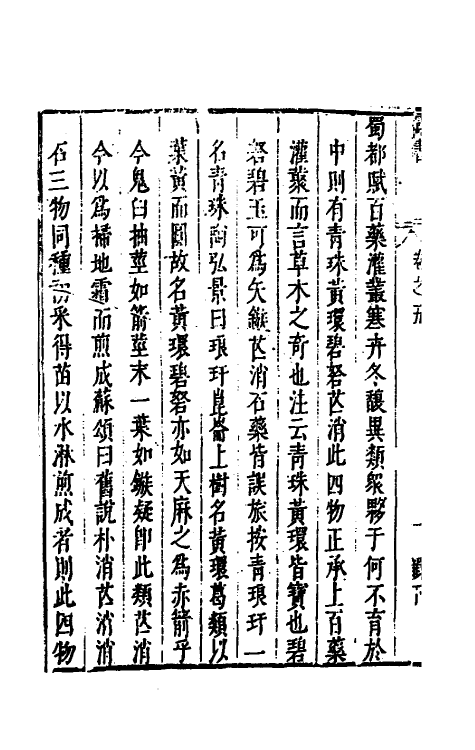 蜀都賦百藥灌叢寒卉冬馥異類衆夥于何不育於
中則有青珠黃環碧砮芒消此四物正承上百藥
灌叢而言草木之奇也注云青珠黃環皆寶也碧
砮碧玉可為矢鏃芒消石藥皆誤旅按青琅玕一
名青珠陶弘景曰琅玕崑崙上樹名黃環葛類以
葉黃而圓故名黃環碧砮亦如天麻之為赤箭乎
今鬼臼抽莖如箭莖末一葉如鏃疑即此類芒消
今以為掃地霜而煎成蘇頌曰舊說朴消芒消消
石三物同種初采得苗以水淋煎成者則此四物